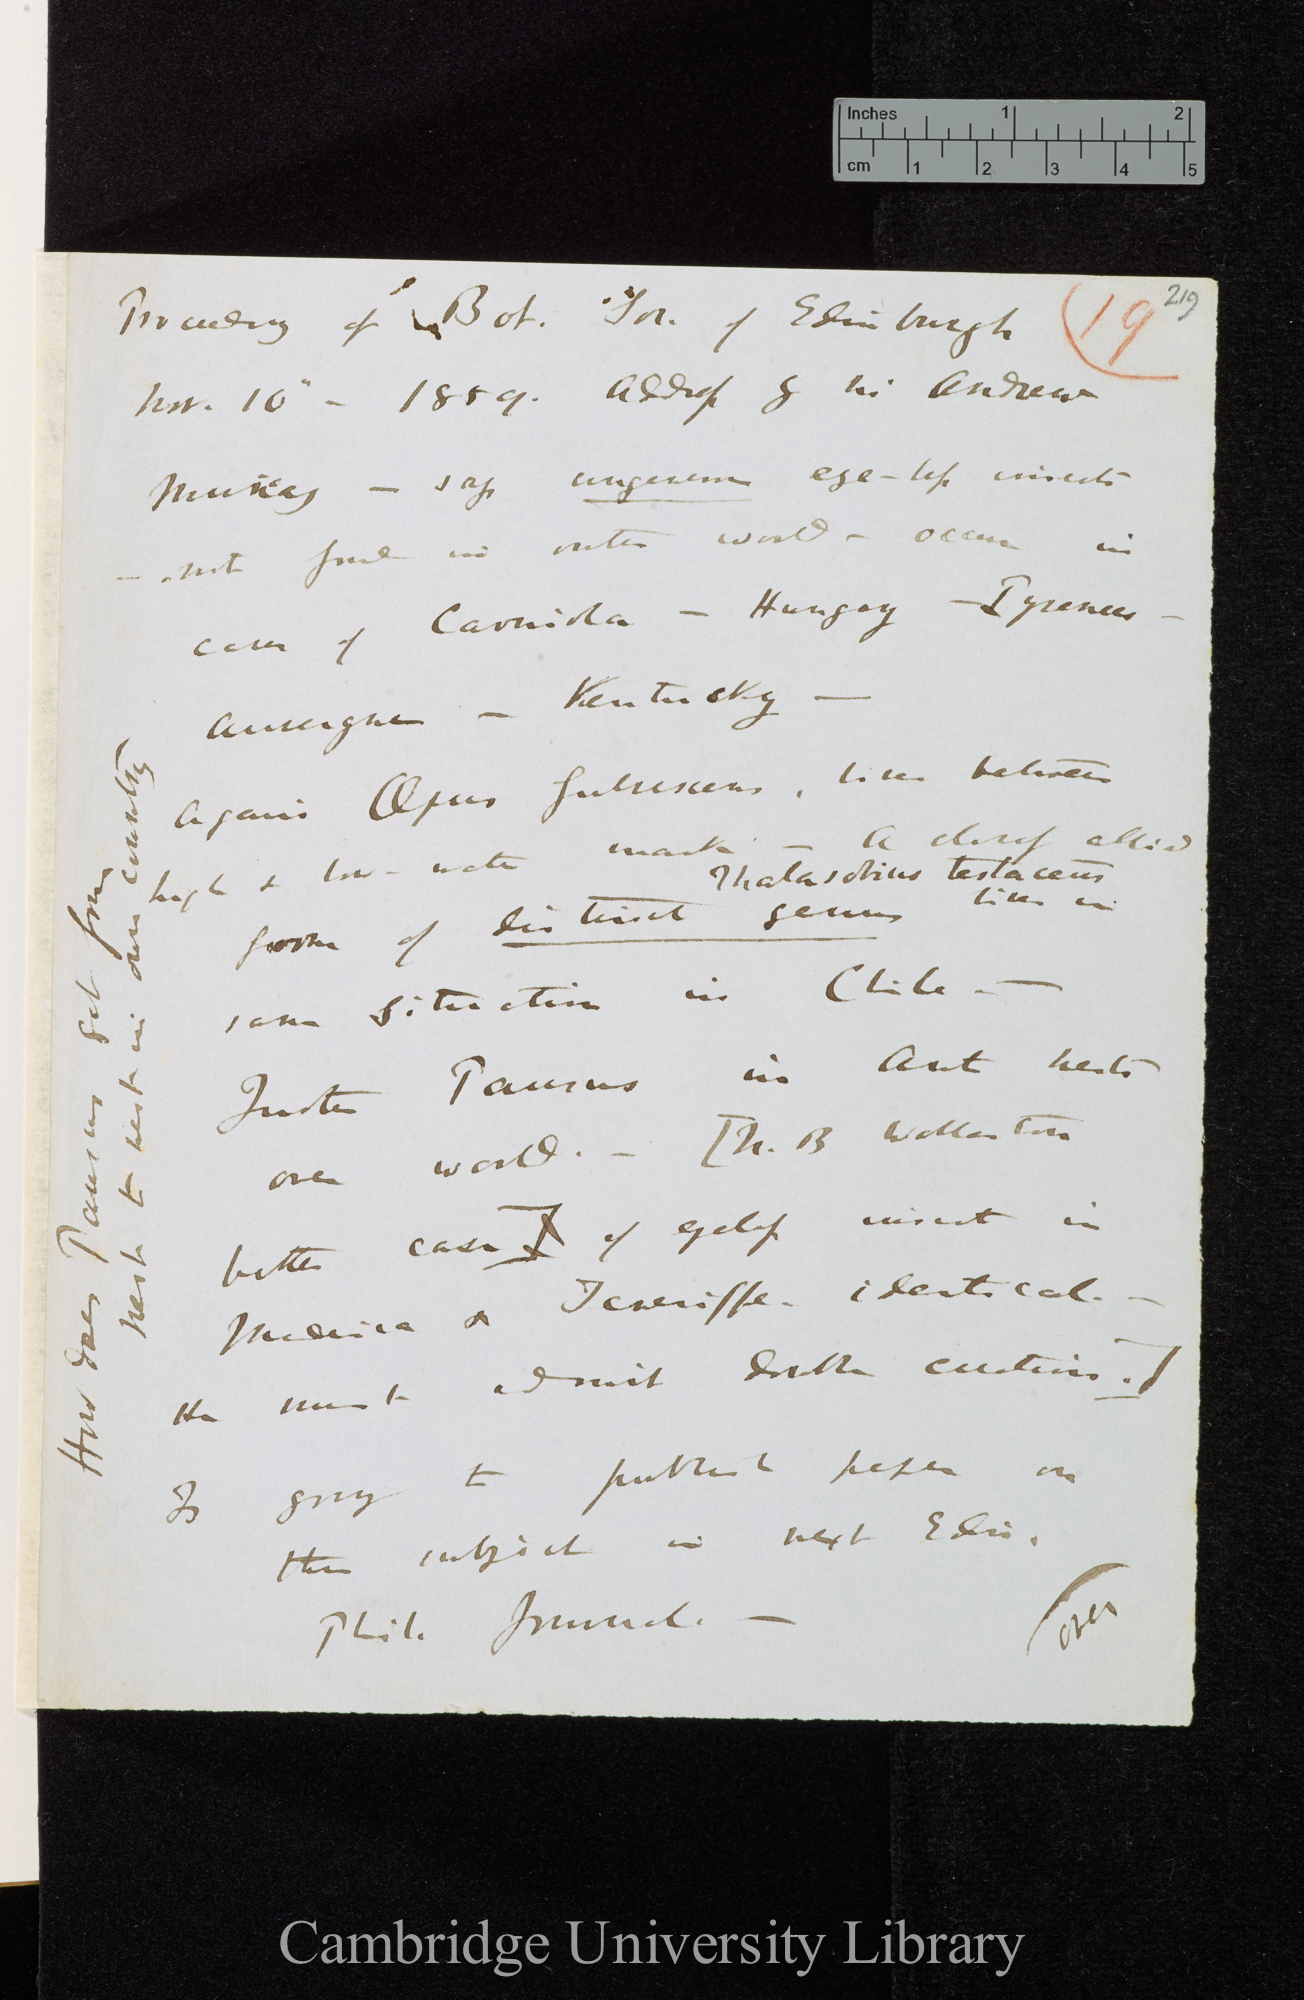 Inches 1 2
cm 1 2 3 4 5
219
19
Proceeding of Bot. Soc. of Edinburgh
Nov. 10" - 1859. Address of Mr Andrew
Murray — says eye-less insects
— not found in outer world - occur in
caves of Carniola — Hungary — Pyrenees —
Auvergne — Kentucky —
Again Œpus fulvescens, lives between
high & low-water mark — A closely allied
Thalasobius testaceus
form of distinct genus lives in
same situation in Chile —
Instances Paussus in Ant nests
over world. — [N.B Wollaston
better case] of eyeless insect in
Madeira & Teneriffe identical. —
He must admit double creations.]
Is going to publish paper on
this subject in next Edin.
Phil. Journal. —
(over
How does Paussus get from
nest to nest in own country
Cambridge University Library